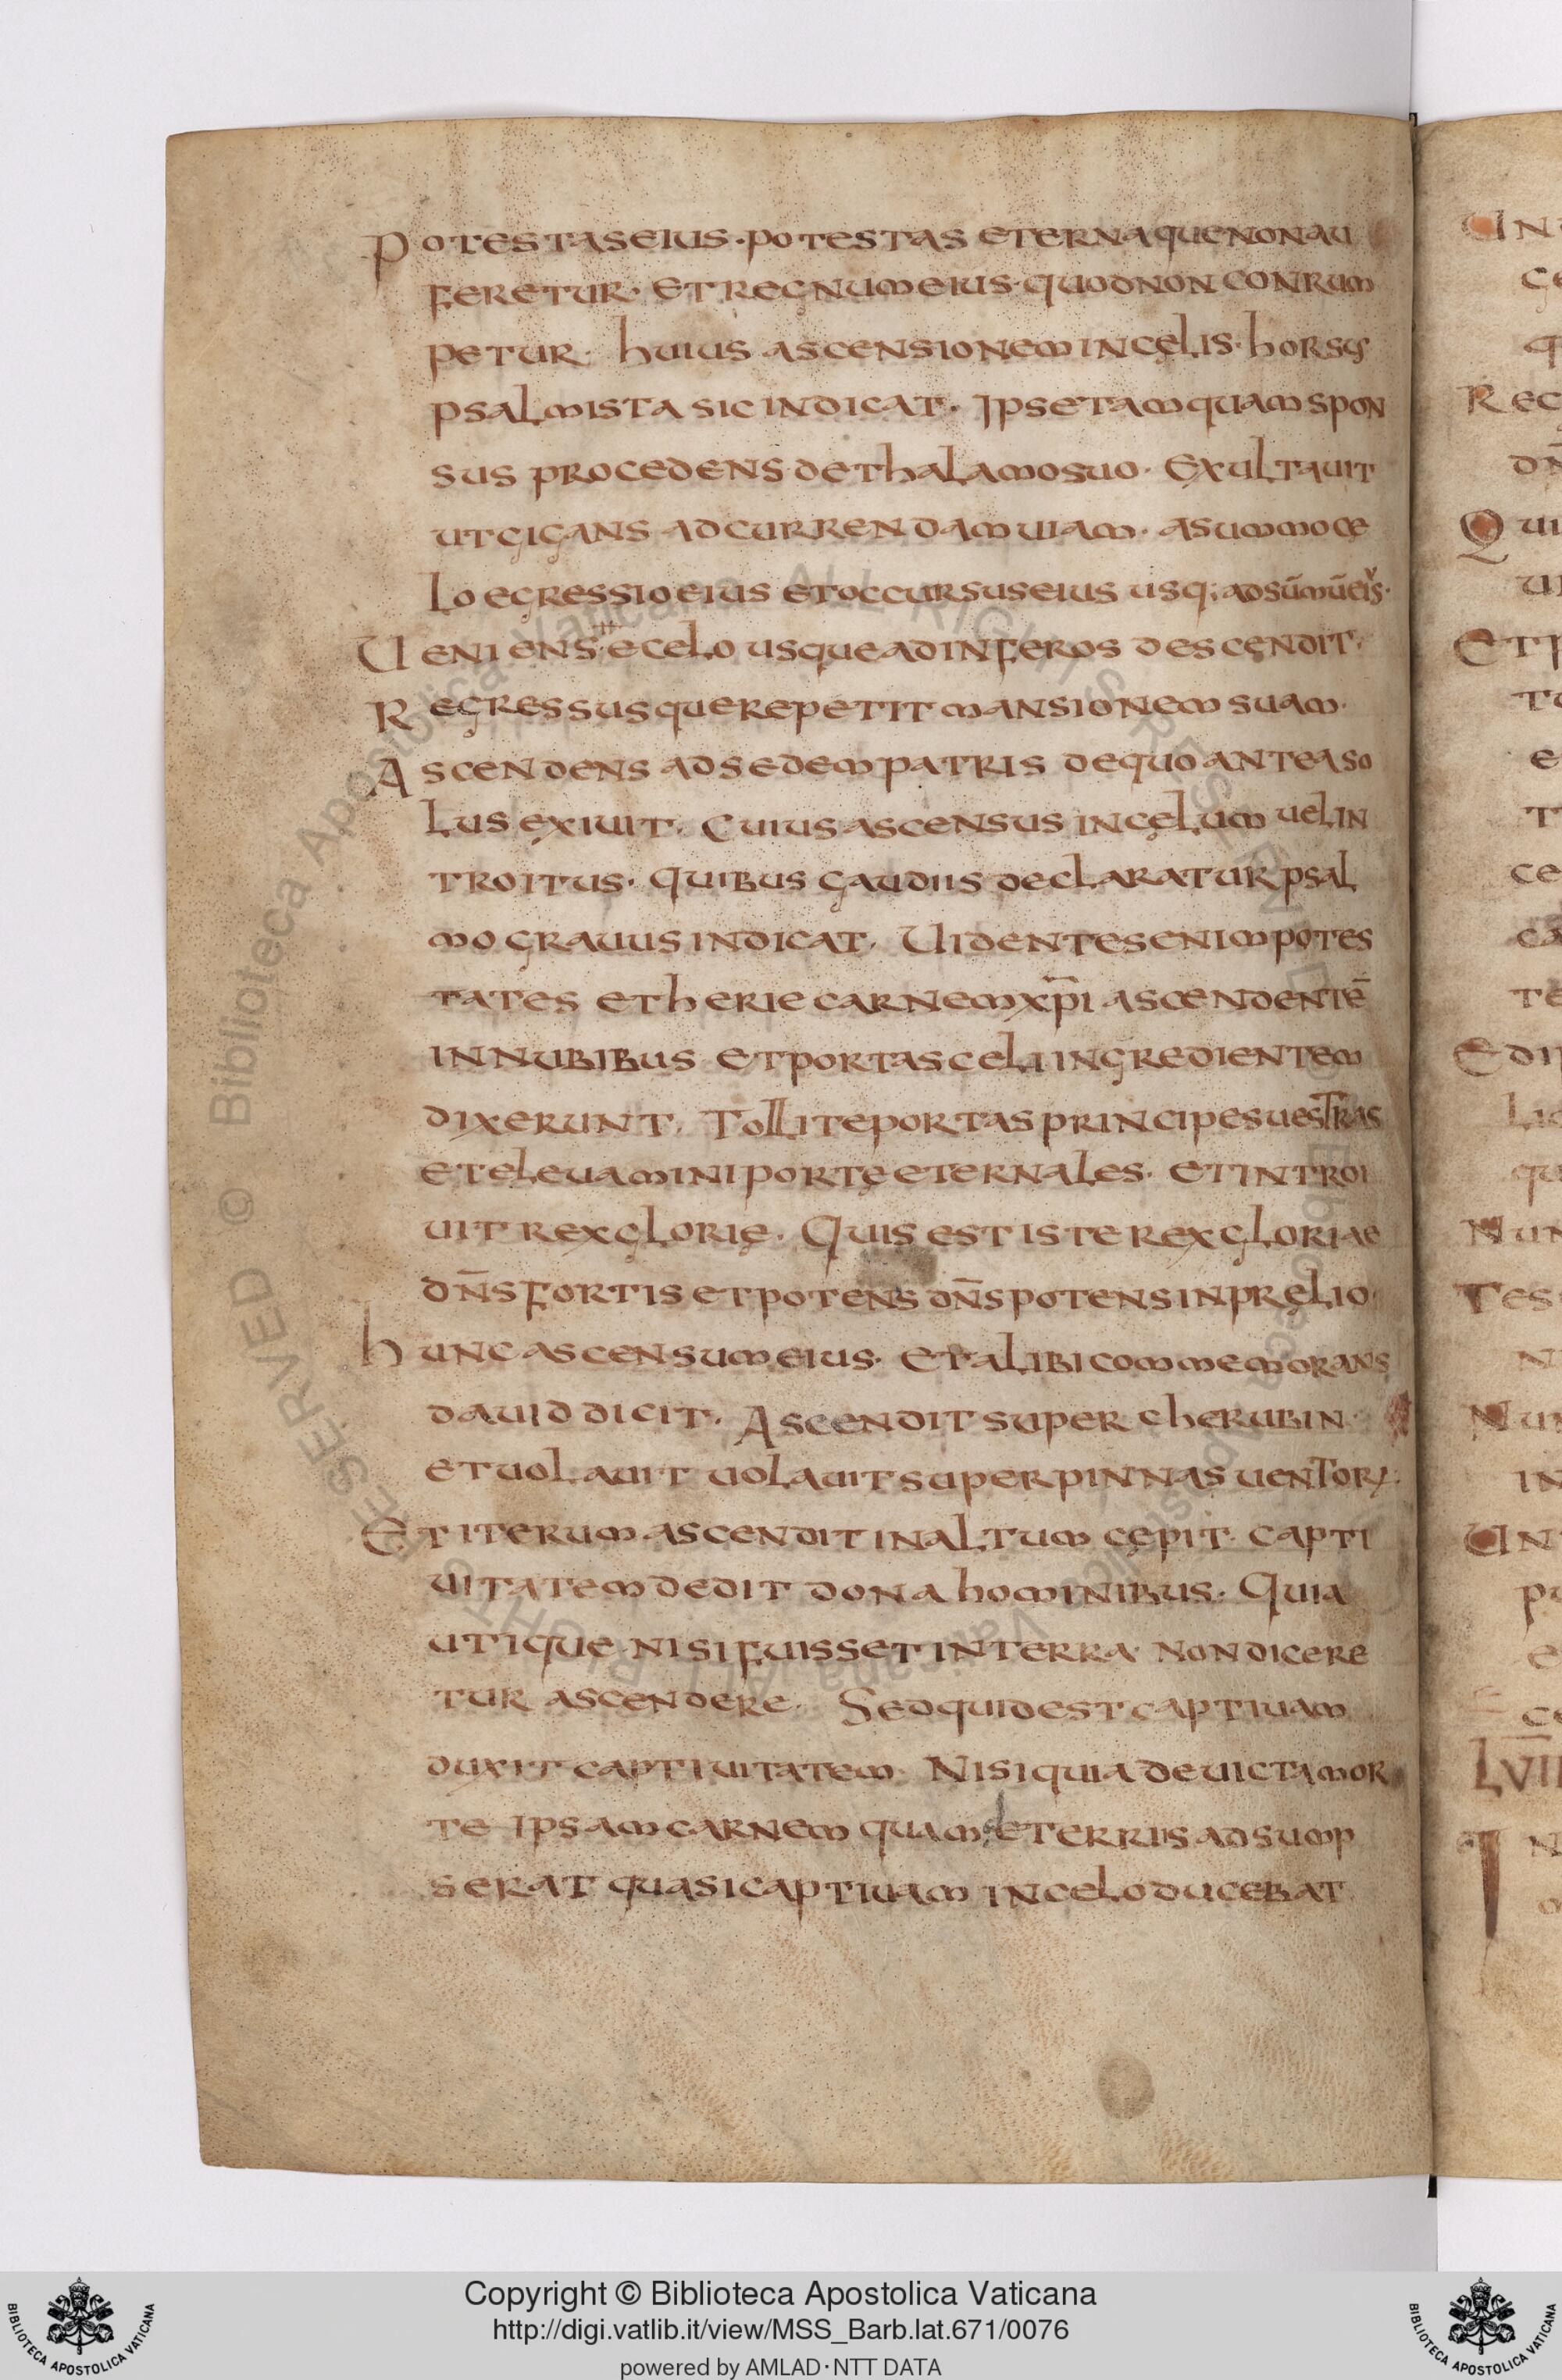 Potestas eius · potestas eterna que non au
feretur · et regnum eius · quod non conrum
petur · huius ascensionem in cęlis · horsꝰ
psalmista sic indicat · Ipse tamquam spon
sus procedens de thalamo suo · Exultauit
ut gigans ad currendam uiam · a summo cę
lo egressio eius et occursus eius usq; ad sūmū eiꝰs ·
Ueniens e celo usque ad inferos descendit ·
Regressusque repetit mansionem suam ·
Ascendens ad sedem patris de quo antea so
lus exiuit · Cuius ascensus in cęlum uel in
troitus · quibus gaudiis declaratur psal
mograuus indicat · Uidentes enim potes
tates etherie carnem xp̄i ascendentē
in nubibus et portas celi ingredientem
dixerunt · Tollite portas principes uestras
et eleuamini portę eternales · et introi
uit rex glorię · Quis est iste rex gloriae
dn̄s fortis et potens dn̄s potens in pręlio ·
hunc ascensum eius · et alibi commemorans
dauid dicit · Ascendit super cherubin ·
et uolauit uolauit super pinnas uentorꝝ ·
Et iterum ascendit in altum cępit · capti
uitatem dedit dona hominibus · Quia
utique nisi fuisset in terra · non dicere
tur ascendere · Sed quid est captiuam
duxit captiuitatem · Nisi quia deuicta mor
te ipsam carnem quam e terris adsump
serat quasi captiuam in celo ducebat
Un
Lvii
© Biblioteca Apostolica Vaticana ALL RIGHTS RESERVED
Copyright © Biblioteca Apostolica Vaticana
http://digi.vatlib.it/view/MSS_Barb.lat.671/0076
powered by AMLAD·NTT DATA
BIBLIOTECA APOSTOLICA VATICANA
BIBLIOTECA APOSTOLICA VATICANA